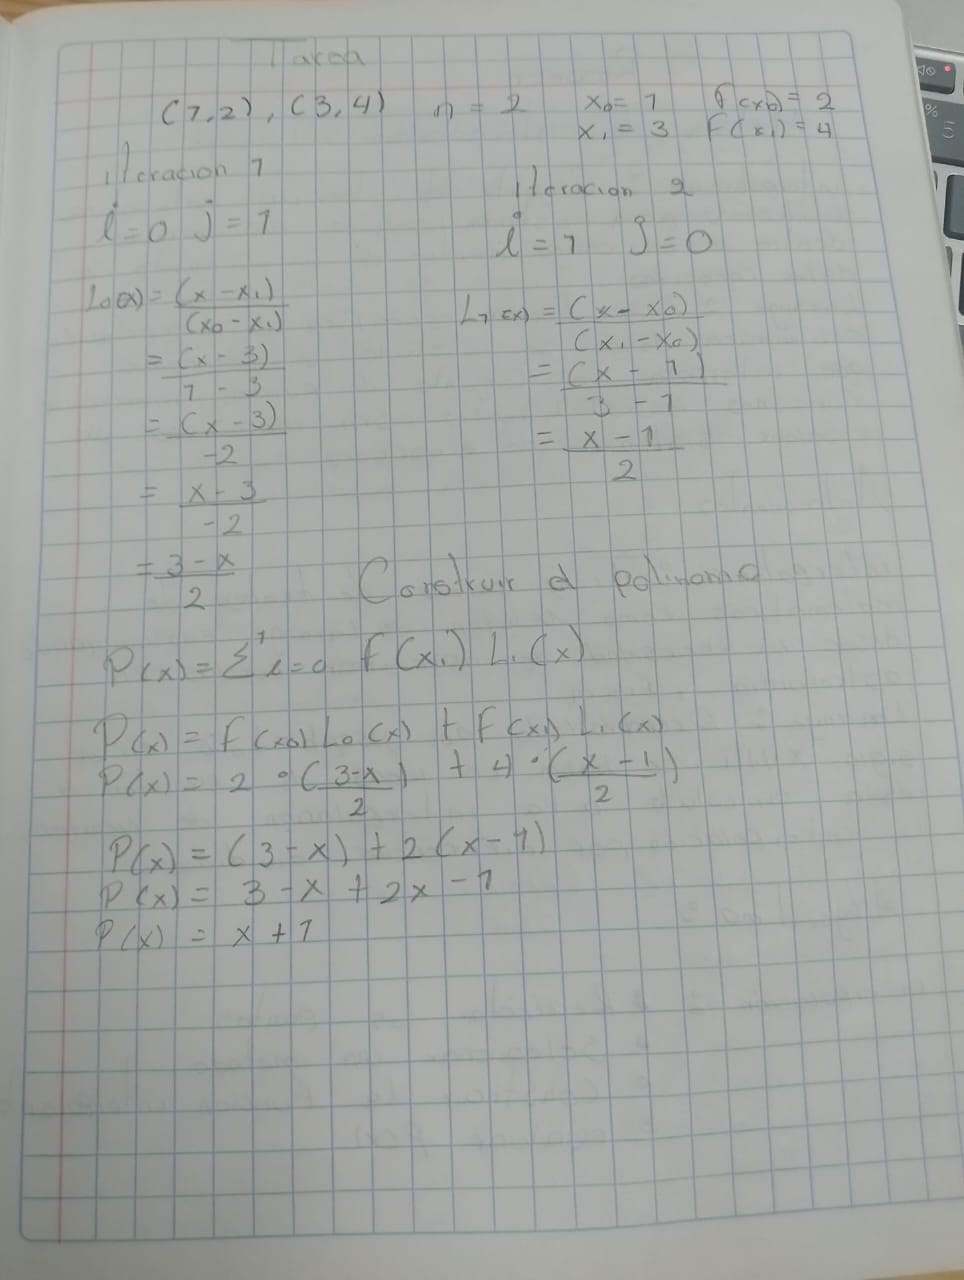 Tarea
(1,2), (3,4) n = 2 x₀ = 1 f(x₀) = 2
x₁ = 3 F(x₁) = 4
iteracion 1
Iteracion 2
i = 0 j = 1
i = 1 j = 0
L₀(x) = (x - x₁) / (x₀ - x₁)
= (x - 3) / 1 - 3
= (x - 3) / -2
= x - 3 / -2
= 3 - x / 2
L₁(x) = (x - x₀) / (x₁ - x₀)
= (x - 1) / 3 - 1
= x - 1 / 2
Construir el polinomio
P(x) = Σ¹ i=0 f(xᵢ) Lᵢ(x)
P(x) = f(x₀) L₀(x) + f(x₁) L₁(x)
P(x) = 2 · (3-x / 2) + 4 · (x - 1 / 2)
P(x) = (3 - x) + 2(x - 1)
P(x) = 3 - x + 2x - 1
P(x) = x + 1